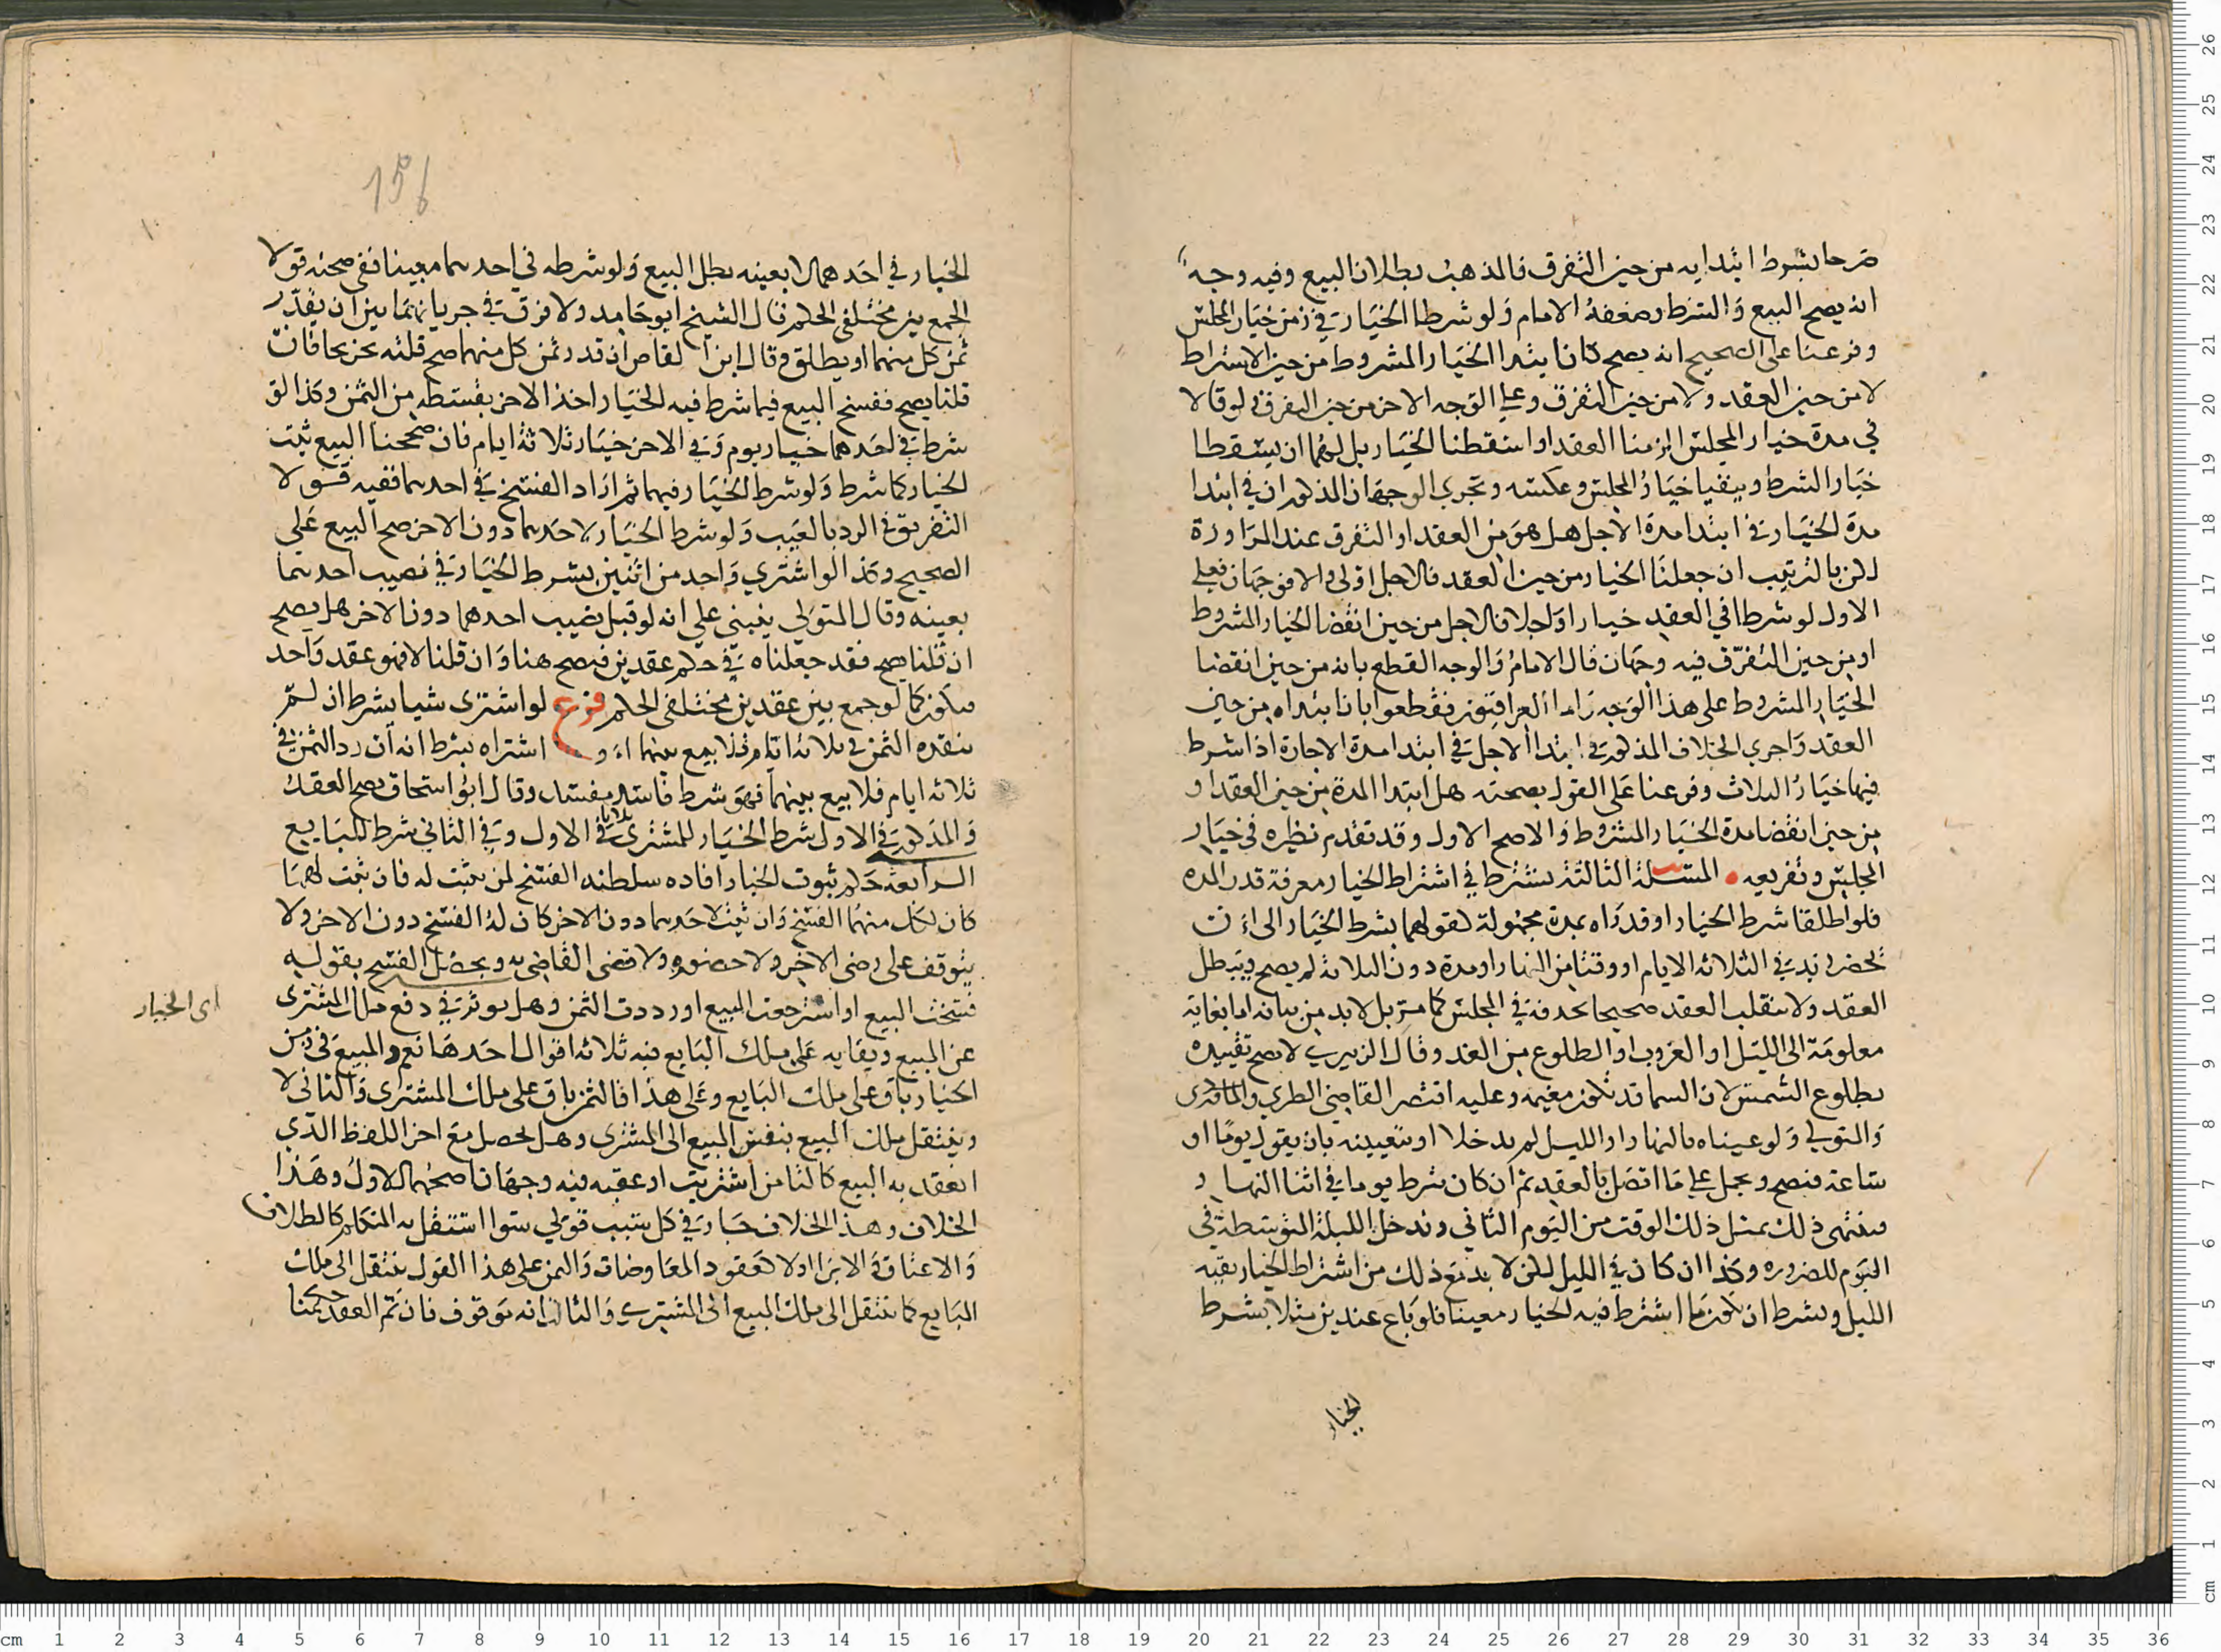 صرحا بشرط ابتدايه من حين التفرق فالمذهب بطلان البيع وفيه وجه
انه يصح البيع والشرط وضعفه الامام ولو شرطا الخيار في زمن خيار المجلس
وفرعنا على الصحيح انه يصح كان ابتدا الخيار المشروط من حين الاشتراط
لا من حين العقد ولا من حين التفرق وعلي الوجه الاخر من حين التفرق ولو قالا
في مدة خيار المجلس الزمنا العقد او اسقطنا الخيار بل لهما ان يسقطا
خيار الشرط ويبقيا خيار المجلس وعكسه ويجري الوجهان المذكوران في ابتدا
مدة الخيار في ابتدا مدة الاجل هل هو من العقد او التفرق عند المراوزة
لكن بالترتيب ان جعلنا الخيار من حين العقد فالاجل اولى والا فوجهان فعلي
الاول لو شرطا في العقد خيارا واجلا فالاجل من حين انقضا الخيار المشروط
او من حين التفرق فيه وجهان قال الامام والوجه القطع بانه من حين انقضا
الخيار المشروط على هذا الوجه واما العراقيون فقطعوا بان ابتداه من حين
العقد واجري الخلاف المذكور في ابتدا الاجل في ابتدا مدة الاجارة اذا شرط
فيها خيار الثلاث وفرعنا على القول بصحته هل ابتدا المدة من حين العقد او
من حين انقضا مدة الخيار المشروط والاصح الاول وقد تقدم نظيره في خيار
المجلس وتفريعه المسلة الثالثة يشترط في اشتراط الخيار معرفة قدر المده
فلو اطلقا شرط الخيار او قدراه بمدة مجهولة كقولهما بشرط الخيار الى ان
يحضر زيد في الثلاثه الايام او وقتا من النهار او مدة دون الثلاثة لم يصح ويبطل
العقد ولا ينقلب العقد صحيحا بحذفه في المجلس كما مر بل لا بد من بيانه اما بغاية
معلومة الى الليل او الغروب او الطلوع من الغد وقال الزبيري لا يصح تقييده
بطلوع الشمس لان السما قد تكون مغيمه وعليه اقتصر القاضي الطبري والماوردي
والمتولي ولو عيناه بالنهار او الليل لم يدخلا او بتعيينه بان يقول يوما او
ساعة فيصح ويحمل علي ما اتصل بالعقد ثم ان كان شرط يوما في اثنا النهار
فينتهي ذلك بمثل ذلك الوقت من اليوم الثاني وتدخل الليلة المتوسطة في
اليوم للضروره وكذا ان كان في الليل لكن لا بد مع ذلك من اشتراط الخيار بقية
الليل ويشرط ان يكون ما اشترط فيه الخيار معينا فلو باع عبدين مثلا بشرط
الخيار
156
الخيار في احدهما لا بعينه بطل البيع ولو شرطه في احدهما معينا ففي صحته قولا
الجمع بين مختلفي الحكم قال الشيخ ابو حامد ولا فرق في جريانهما بين ان يقدر
ثمن كل منهما او يطلق وقال ابن القاص ان قدر ثمن كل منهما صح قلته بحن بحافان
قلنا يصح ففسخ البيع فيما شرط فيه الخيار اخذ الاخر بقسطه من الثمن وكذا لو
شرط في احدهما خيار يوم وفي الاخر خيار ثلاثة ايام فان صححنا البيع ثبت
الخيار كما شرط ولو شرط الخيار فيهما ثم اراد الفسخ في احدهما ففيه قولا
التفريق في الرد بالعيب ولو شرط الخيار لاحدهما دون الاخر صح البيع على
الصحيح وكذا لو اشتري واحد من اثنين بشرط الخيار في نصيب احدهما
بعينه وقال المتولي ينبني علي انه لو قبل نصيب احدهما دون الاخر هل يصح
ان قلنا يصح فقد جعلناه في حكم عقدين فيصح هنا وان قلنا لا فهو عقد واحد
فيكون كما لو جمع بين عقدين مختلفي الحكم فرع لو اشترى شيا بشرط ان لم
ينقده الثمن في ثلاثه ايام فلا بيع بينهما او اشتراه بشرط انه ان رد الثمن في
ثلاثه ايام فلا بيع بينهما فهو شرط فاسد مفسد وقال ابو اسحاق يصح العقد
والمذكور في الاول شرط الخيار للمشترى ثلاثا في الاول وفي الثاني شرط للبايع
الرابعة حكم ثبوت الخيار افاده سلطنه الفسخ لمن يثبت له فان ثبت لهما
كان لكل منهما الفسخ وان ثبت لاحدهما دون الاخر كان له الفسخ دون الاخر ولا
يتوقف على رضى الاخر ولا حضوره ولا قضى القاضي به ويحصل الفسخ بقوله
فسخت البيع او استرجعت المبيع او رددت الثمن وهل يوثر في دفع ملك المشترى
اى الخيار
عن المبيع وبقايه على ملك البايع فيه ثلاثه اقوال احدها نعم والمبيع في زمن
الخيار باق على ملك البايع وعلى هذا فالثمن باق على ملك المشترى والثانى لا
وينتقل ملك المبيع بنفس البيع الى المشترى وهل يحصل مع اخر اللفظ الذي
انعقد به البيع كالتا من اشتريت او عقبه فيه وجهان اصحهما الاول وهذا
الخلاف وهذا الخلاف جار في كل سبب قولي سوا استقل به المتكلم كالطلاق
والاعتاق والابرا او لا كعقود المعاوضات والثمن على هذا القول ينتقل الى ملك
البايع كما ينتقل الى ملك المبيع الى المشترى والثالث انه موقوف فان تم العقد حكمنا